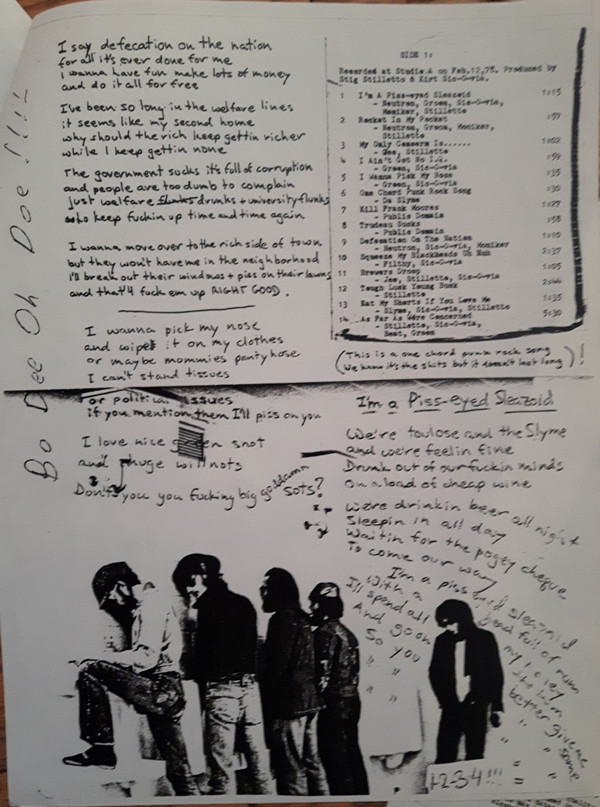 I say defecation on the nation
for all it's ever done for me
I wanna have fun make lots of money
and do it all for free
I've been so long in the welfare lines
it seems like my second home
why should the rich keep gettin richer
while I keep gettin none
The government sucks it's full of corruption
and people are too dumb to complain
Just welfare drunks + university flunks
who keep fuckin up time and time again
I wanna move over to the rich side of town
but they won't have me in the neighborhood
I'll break out their windows + piss on their lawns
and that'll fuck em up RIGHT GOOD.
I wanna pick my nose
and wipe it on my clothes
or maybe mommies pantyhose
I can't stand tissues
or political issues
if you mention them I'll piss on you
I love nice green snot
and huge
Don't you you fucking big goddamn sots?
Bo Dee Oh Doe!!!!
SIDE 1:
Recorded at Studio A on Feb.12,78. Produced by
Stig Stilletto & Kirt Sic-G-via.
1 I'm A Piss-eyed Sleazoid 1:15
- Neutron, Green, Sic-G-via,
Moniker, Stillette
2 Rocket In My Pocket :57
- Neutron, Groom, Moniker,
Stillette
3 My Only Concern Is...... 1:02
- Gee, Stillette
4 I Ain't Got No I.Q. :59
- Green, Sic-G-via
5 I Wanna Pick My Nose :35
- Green, Sic-G-via
6 One Chord Punk Rock Song :30
- Da Slyme
7 Kill Frank Moores 1:27
- Public Domain
8 Trudeau Sucks :58
- Public Domain
9 Defecation On The Nation 1:10
- Neutron, Sic-G-via, Moniker
10 Squeeze My Blackheads Uh Huh 2:37
- Filthy, Sic-G-via
11 Brewers Droop 1:05
- Jee, Stillette, Sic-G-via
12 Tough Luck Young Buck 2:44
- Stillette
13 Eat My Shorts If You Love Me 1:35
- Slyme, Sic-G-via, Stillette
14 As Far As We're Concerned 5:30
- Stillette, Sic-G-via,
Beat, Green
(This is a one chord punk rock song
We know it's the shits but it doesn't last long)!
I'm a Piss-eyed Sleazoid
We're toulose and the Slyme
and we're feelin fine
Drunk out of our fuckin minds
On a load of cheap wine
We're drinkin beer all night
Sleepin in all day
Waitin for the pogey cheque
To come our way
I'm a piss eyed sleazoid
With a head full of rum
I'll spend all my money
And go on the bum
So you better give me some
" " " " "
" " " " "
1-2-3-4!!!